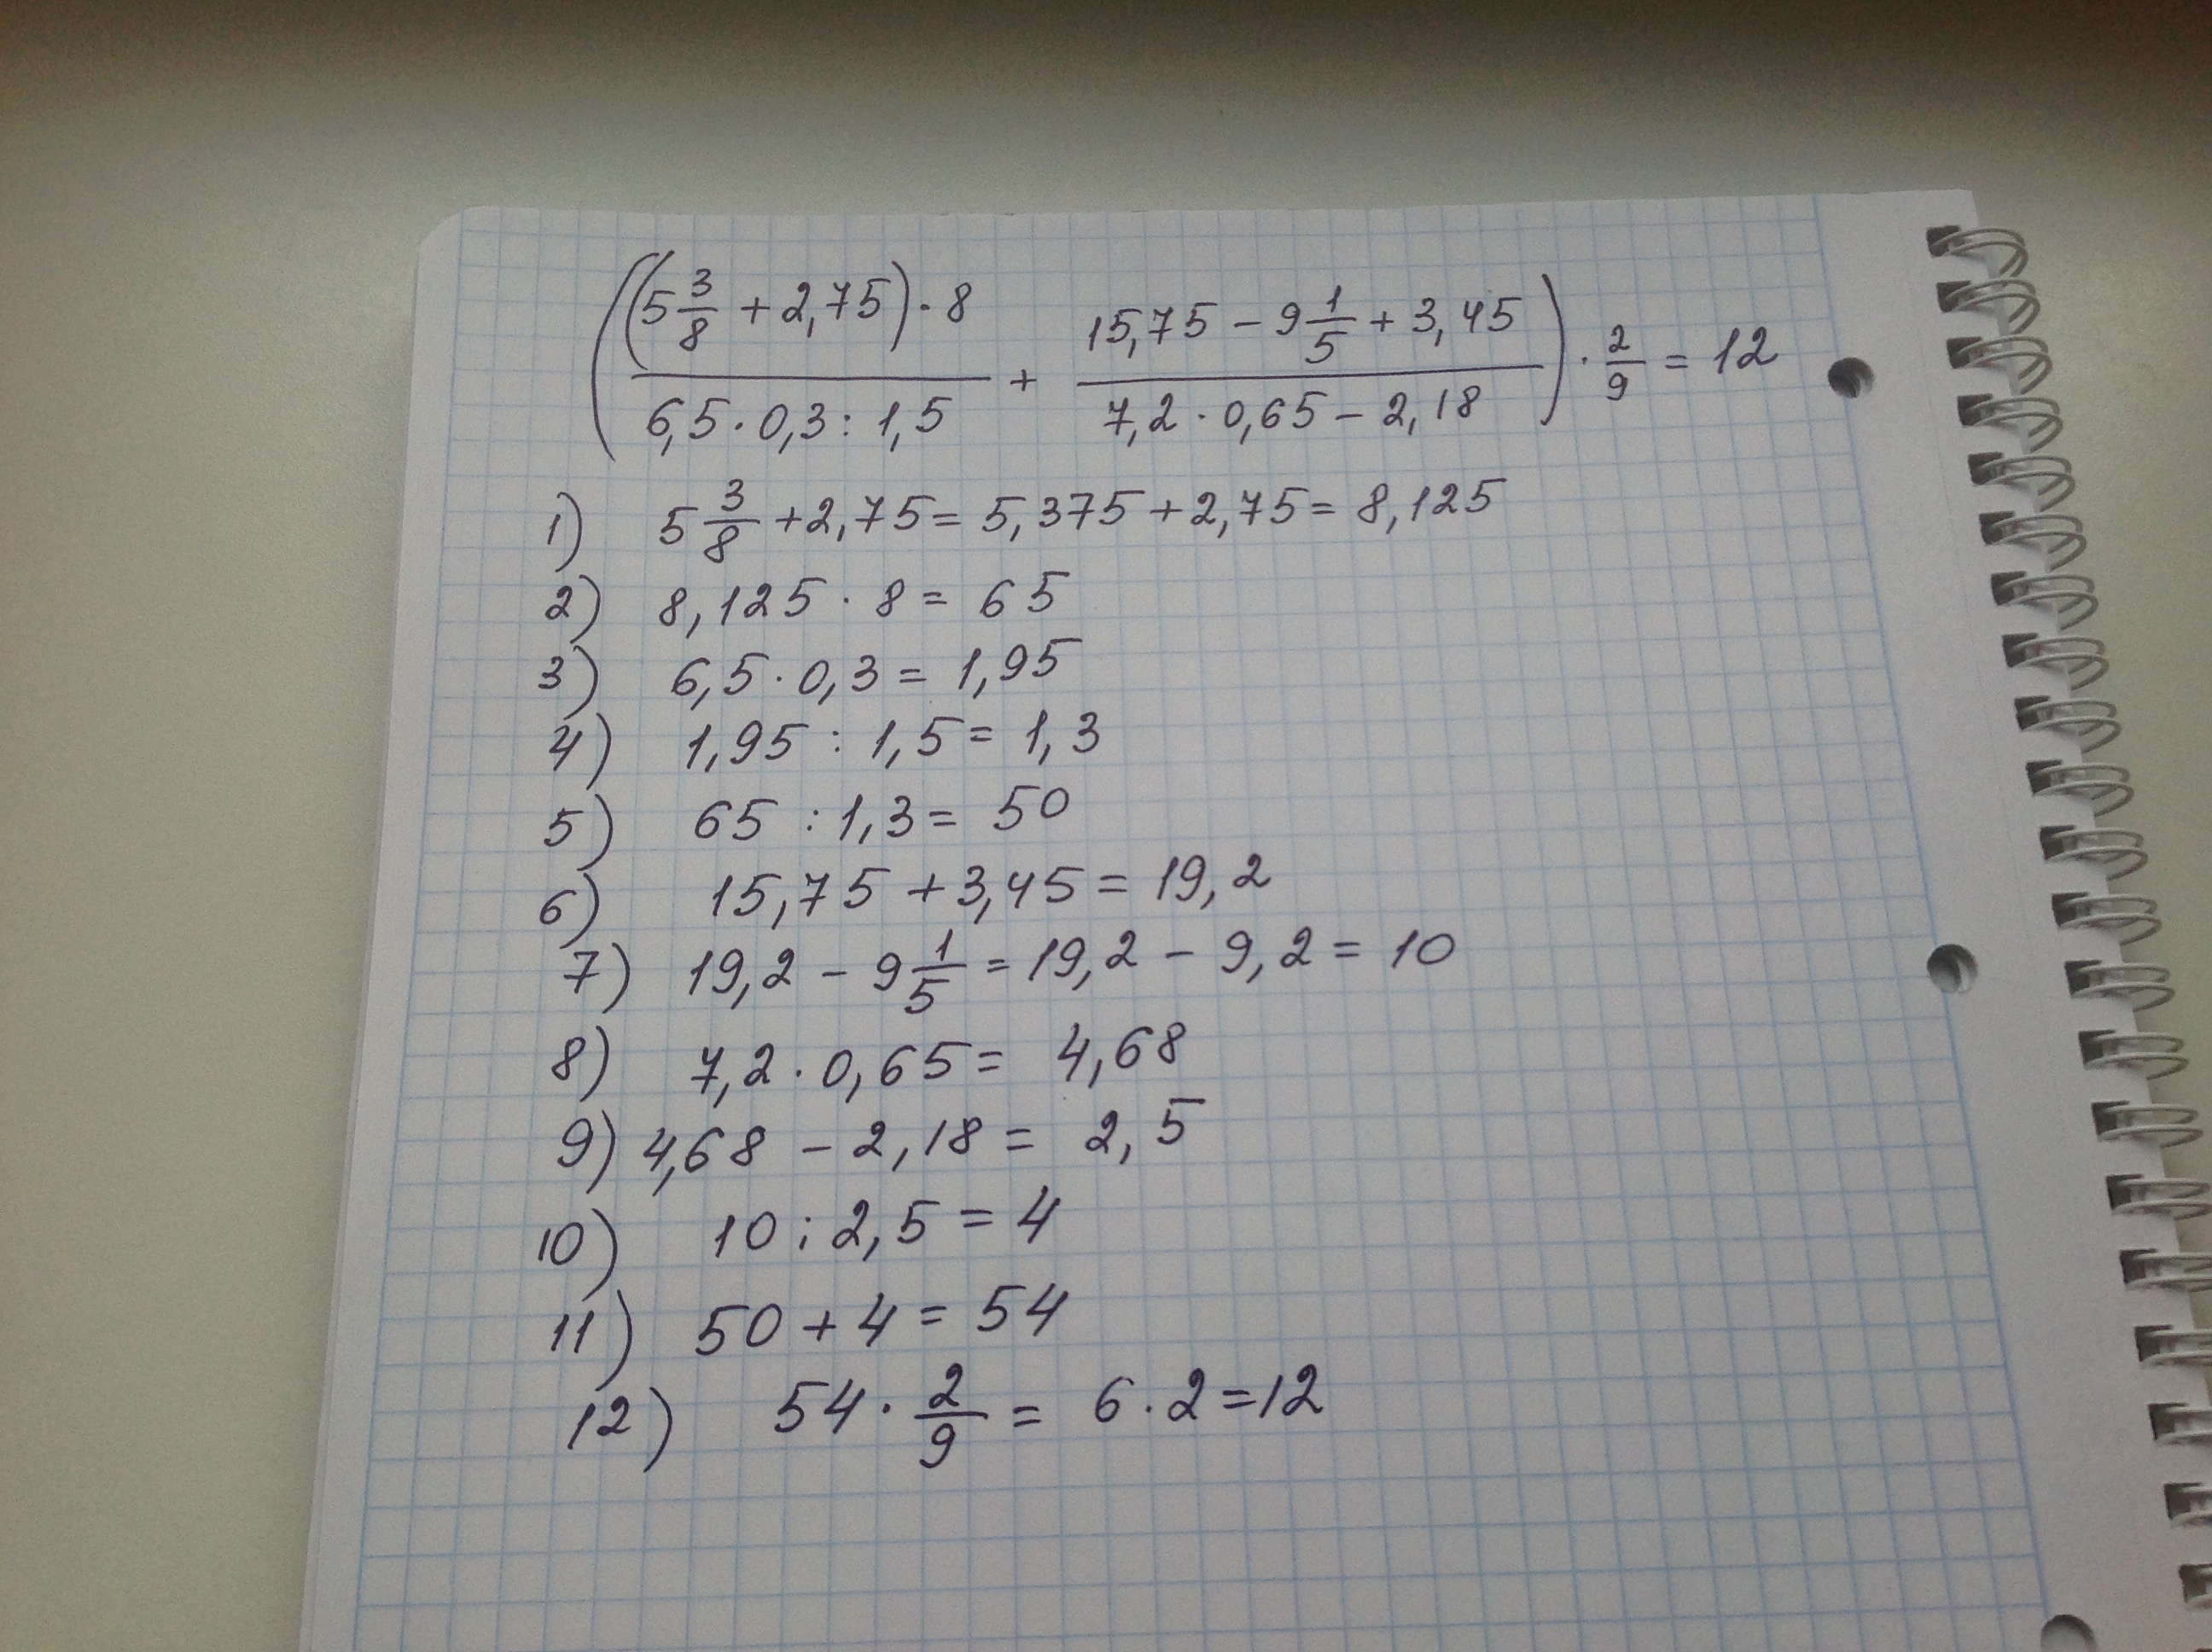 ((5 3/8 + 2,75) · 8 / 6,5 · 0,3 : 1,5 + 15,75 − 9 1/5 + 3,45 / 7,2 · 0,65 − 2,18) · 2/9 = 12
1) 5 3/8 + 2,75 = 5,375 + 2,75 = 8,125
2) 8,125 · 8 = 65
3) 6,5 · 0,3 = 1,95
4) 1,95 : 1,5 = 1,3
5) 65 : 1,3 = 50
6) 15,75 + 3,45 = 19,2
7) 19,2 − 9 1/5 = 19,2 − 9,2 = 10
8) 7,2 · 0,65 = 4,68
9) 4,68 − 2,18 = 2,5
10) 10 : 2,5 = 4
11) 50 + 4 = 54
12) 54 · 2/9 = 6 · 2 = 12